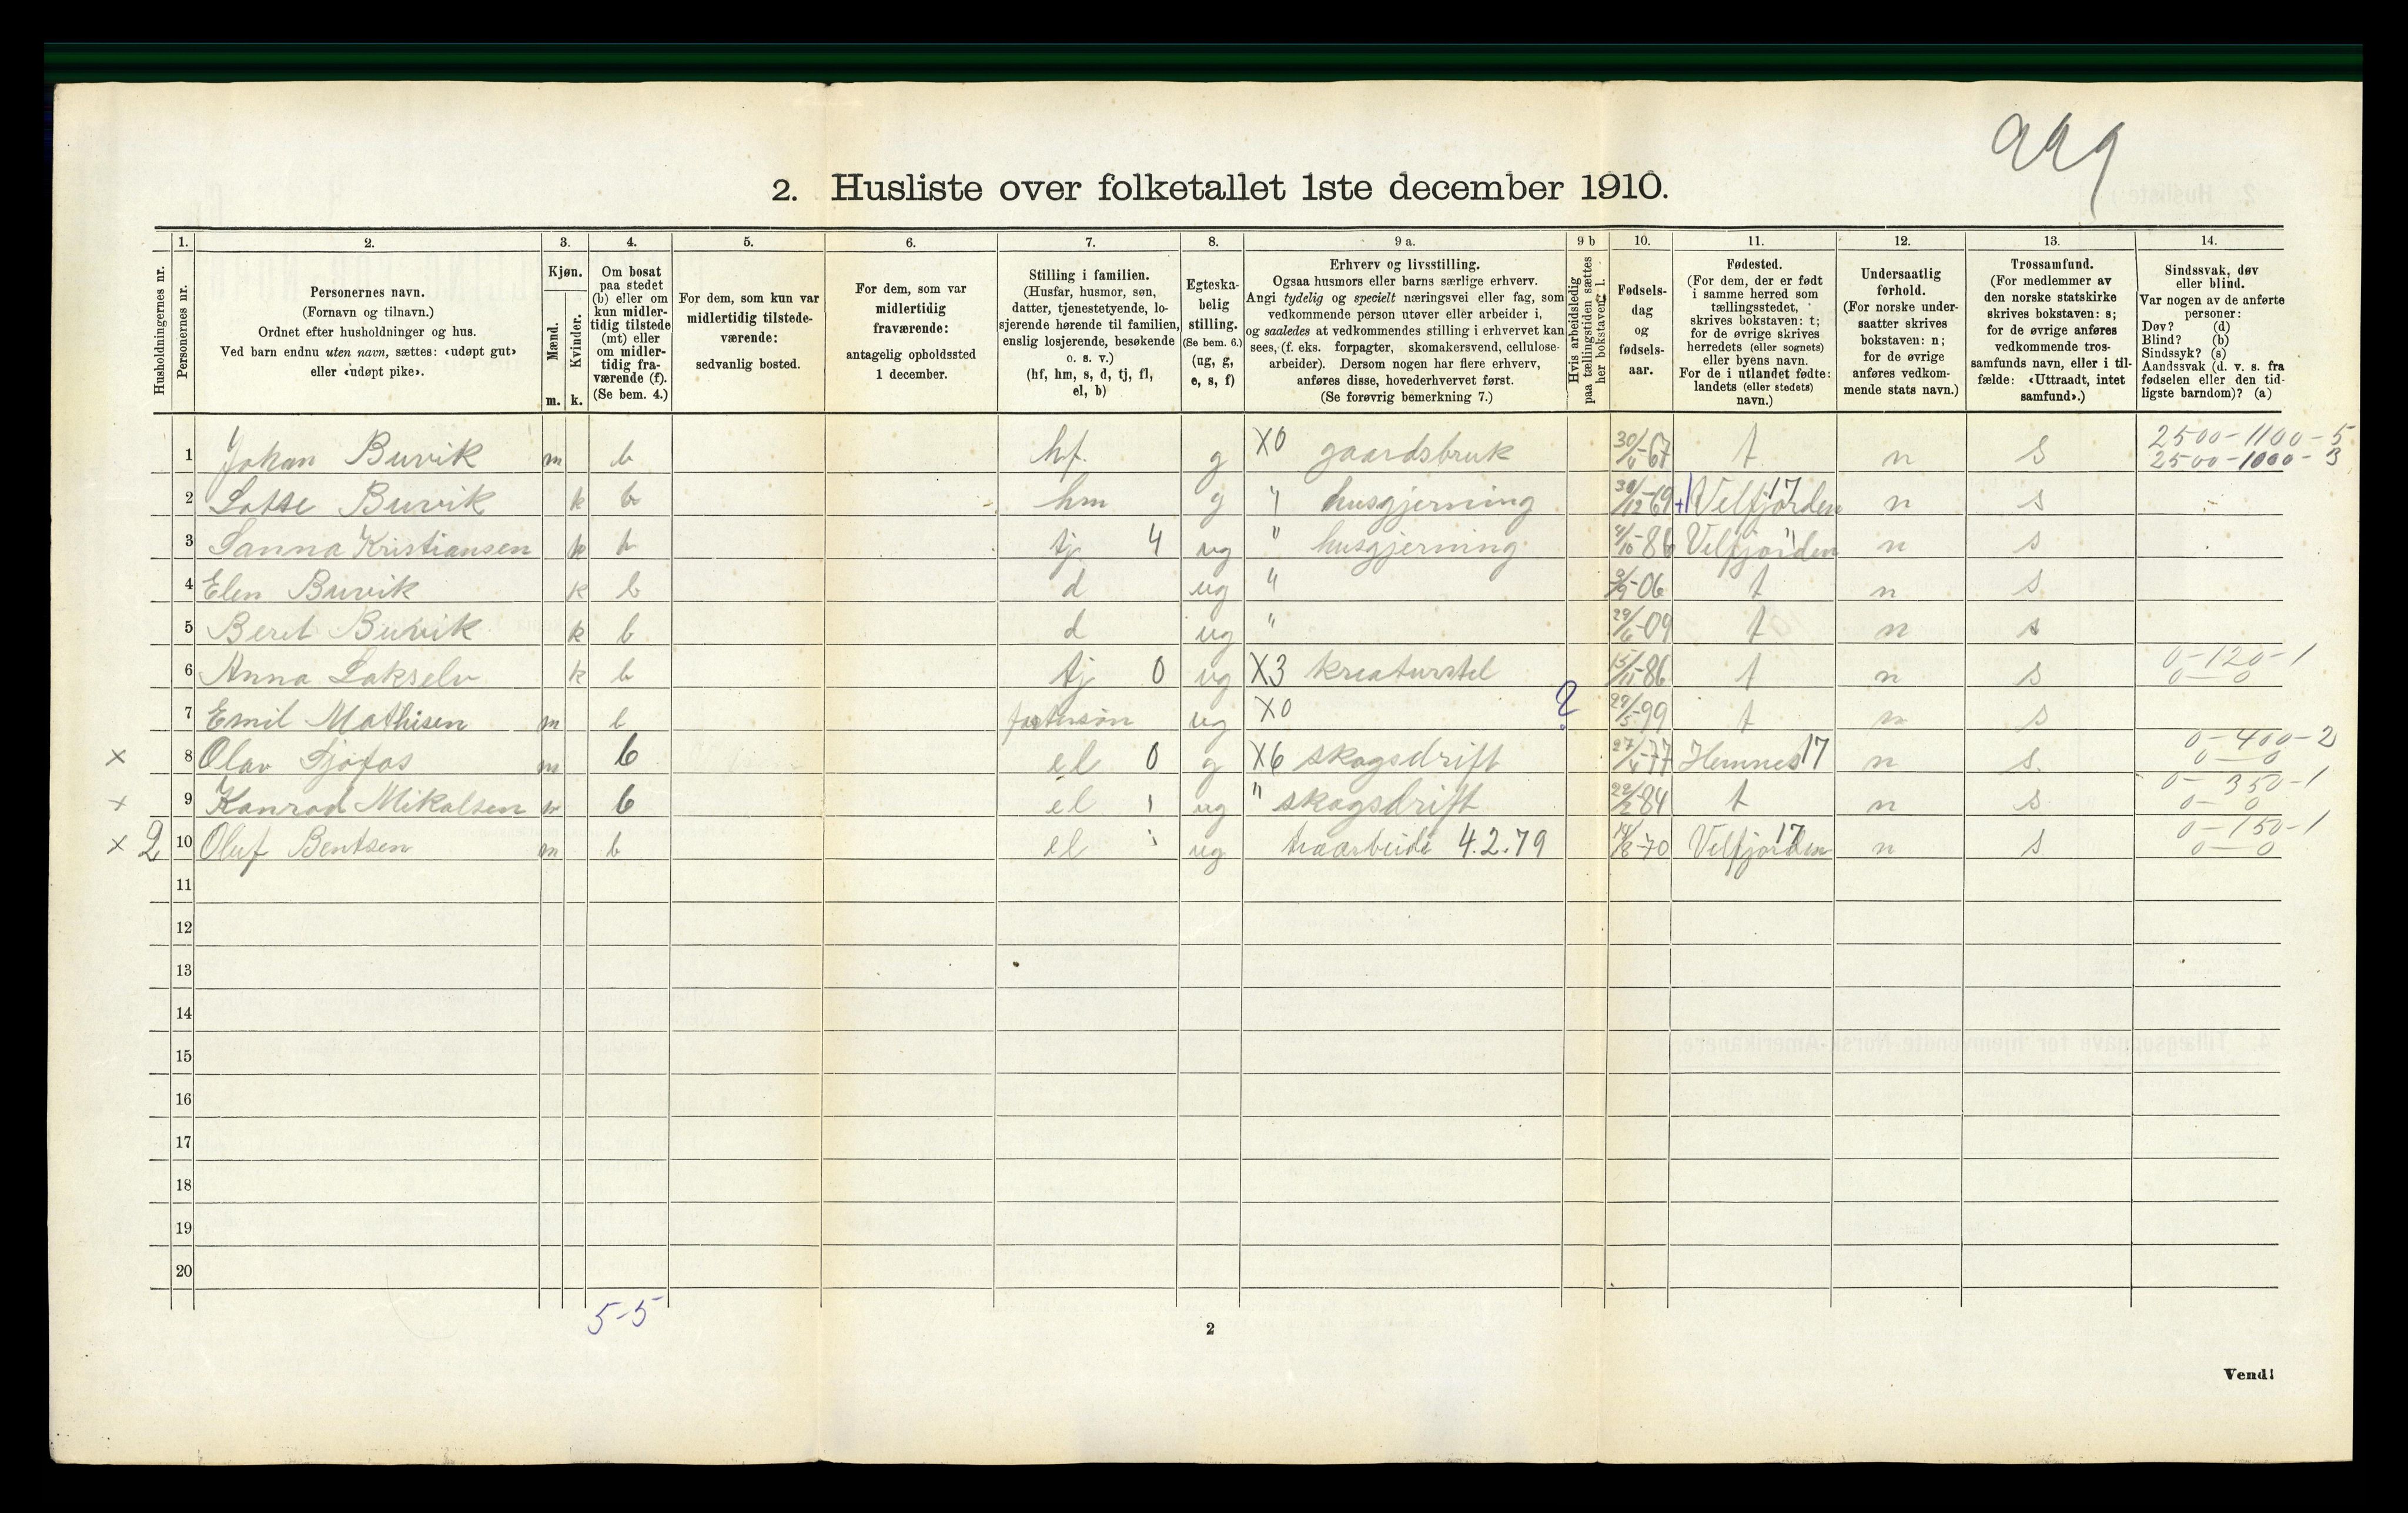 999
2. Husliste over folketallet 1ste december 1910.
Husholdningernes nr.
1.
Personernes nr.
2.
Personernes navn.
(Fornavn og tilnavn.)
Ordnet efter husholdninger og hus.
Ved barn endnu uten navn, sættes: «udøpt gut»
eller «udøpt pike».
3.
Kjøn.
Mænd.
Kvinder.
m. k.
4.
Om bosat
paa stedet
(b) eller om
kun midler-
tidig tilstede
(mt) eller
om midler-
tidig fra-
værende (f).
(Se bem. 4.)
5.
For dem, som kun var
midlertidig tilstede-
værende:
sedvanlig bosted.
6.
For dem, som var
midlertidig
fraværende:
antagelig opholdssted
1 december.
7.
Stilling i familien.
(Husfar, husmor, søn,
datter, tjenestetyende, lo-
sjerende hørende til familien,
enslig losjerende, besøkende
o. s. v.)
(hf, hm, s, d, tj, fl,
el, b)
8.
Egteska-
belig
stilling.
(Se bem. 6.)
(ug, g,
e, s, f)
9 a.
Erhverv og livsstilling.
Ogsaa husmors eller barns særlige erhverv.
Angi tydelig og specielt næringsvei eller fag, som
vedkommende person utøver eller arbeider i,
og saaledes at vedkommendes stilling i erhvervet kan
sees, (f. eks. forpagter, skomakersvend, cellulose-
arbeider). Dersom nogen har flere erhverv,
anføres disse, hovederhvervet først.
(Se forøvrig bemerkning 7.)
9 b
Hvis arbeidsledig
paa tællingstiden sættes
her bokstaven: l.
10.
Fødsels-
dag
og
fødsels-
aar.
11.
Fødested.
(For dem, der er født
i samme herred som
tællingsstedet,
skrives bokstaven: t;
for de øvrige skrives
herredets (eller sognets)
eller byens navn.
For de i utlandet fødte:
landets (eller stedets)
navn.)
12.
Undersaatlig
forhold.
(For norske under-
saatter skrives
bokstaven: n;
for de øvrige
anføres vedkom-
mende stats navn.)
13.
Trossamfund.
(For medlemmer av
den norske statskirke
skrives bokstaven: s;
for de øvrige anføres
vedkommende tros-
samfunds navn, eller i til-
fælde: «Uttraadt, intet
samfund».)
14.
Sindssvak, døv
eller blind.
Var nogen av de anførte
personer:
Døv? (d)
Blind? (b)
Sindssyk? (s)
Aandssvak (d. v. s. fra
fødselen eller den tid-
ligste barndom)? (a)
1 Johan Buvik m b hf. g X0 gaardsbruk 30/6-67 t n s 2500-1100-5
2500-1000-3
2 Lotse Buvik k b hm g " husgjerning 30/12-69 Velfjorden 17 n s
3 Sanna Kristiansen k b tj 4 ug " husgjerning 4/10-86 Velfjorden " n s
4 Elen Buvik k b d ug " -06 t n s
5 Beret Buvik k b d ug " 29/6-09 t n s
6 Anna Lakselv k b tj 0 ug X3 kreaturstel 15/11-86 t n s 0-120-1
0-0
7 Emil Mathisen m b fostersøn ug X0 ? 29/5-99 t n s
x 8 Olav Sjøfos m b el 0 g X6 skogsdrift 27/4-77 Hemnes 17 n s. 0-400-2
0-0
x 9 Konrad Mikalsen m b el ug " skogsdrift 22/2-84 t n s 0-350-1
0-0
x 2 10 Oluf Bentsen m b el ug træarbeide 4.2.79 14/8-70 Velfjorden 17 n s 0-150-1
0-0
11
12
13
14
15
16
17
18
19
20
5-5
2
Vend!